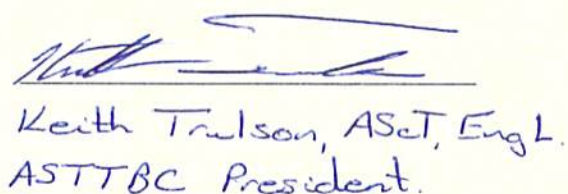 Keith Trulson, AScT, Eng.L.
ASTTBC President.